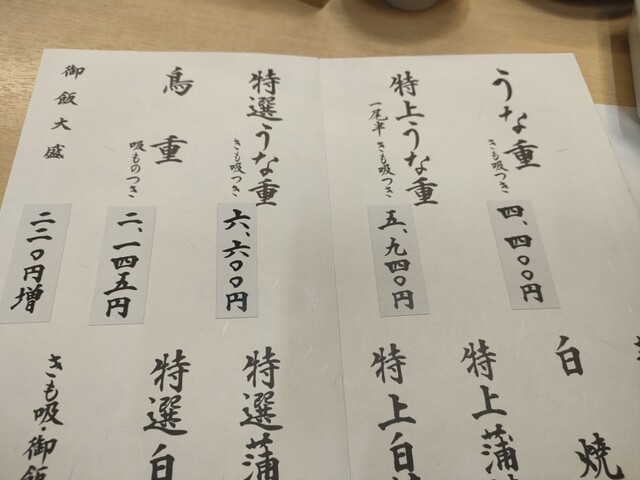 うな重
きも吸つき
四、四〇〇円
特上うな重
一尾半 きも吸つき
五、九四〇円
特選うな重
きも吸つき
六、六〇〇円
鳥重
吸ものつき
二、一四五円
御飯大盛
二二〇円増
白焼
特上蒲
特上白
特選蒲
特選白
きも吸・御飯